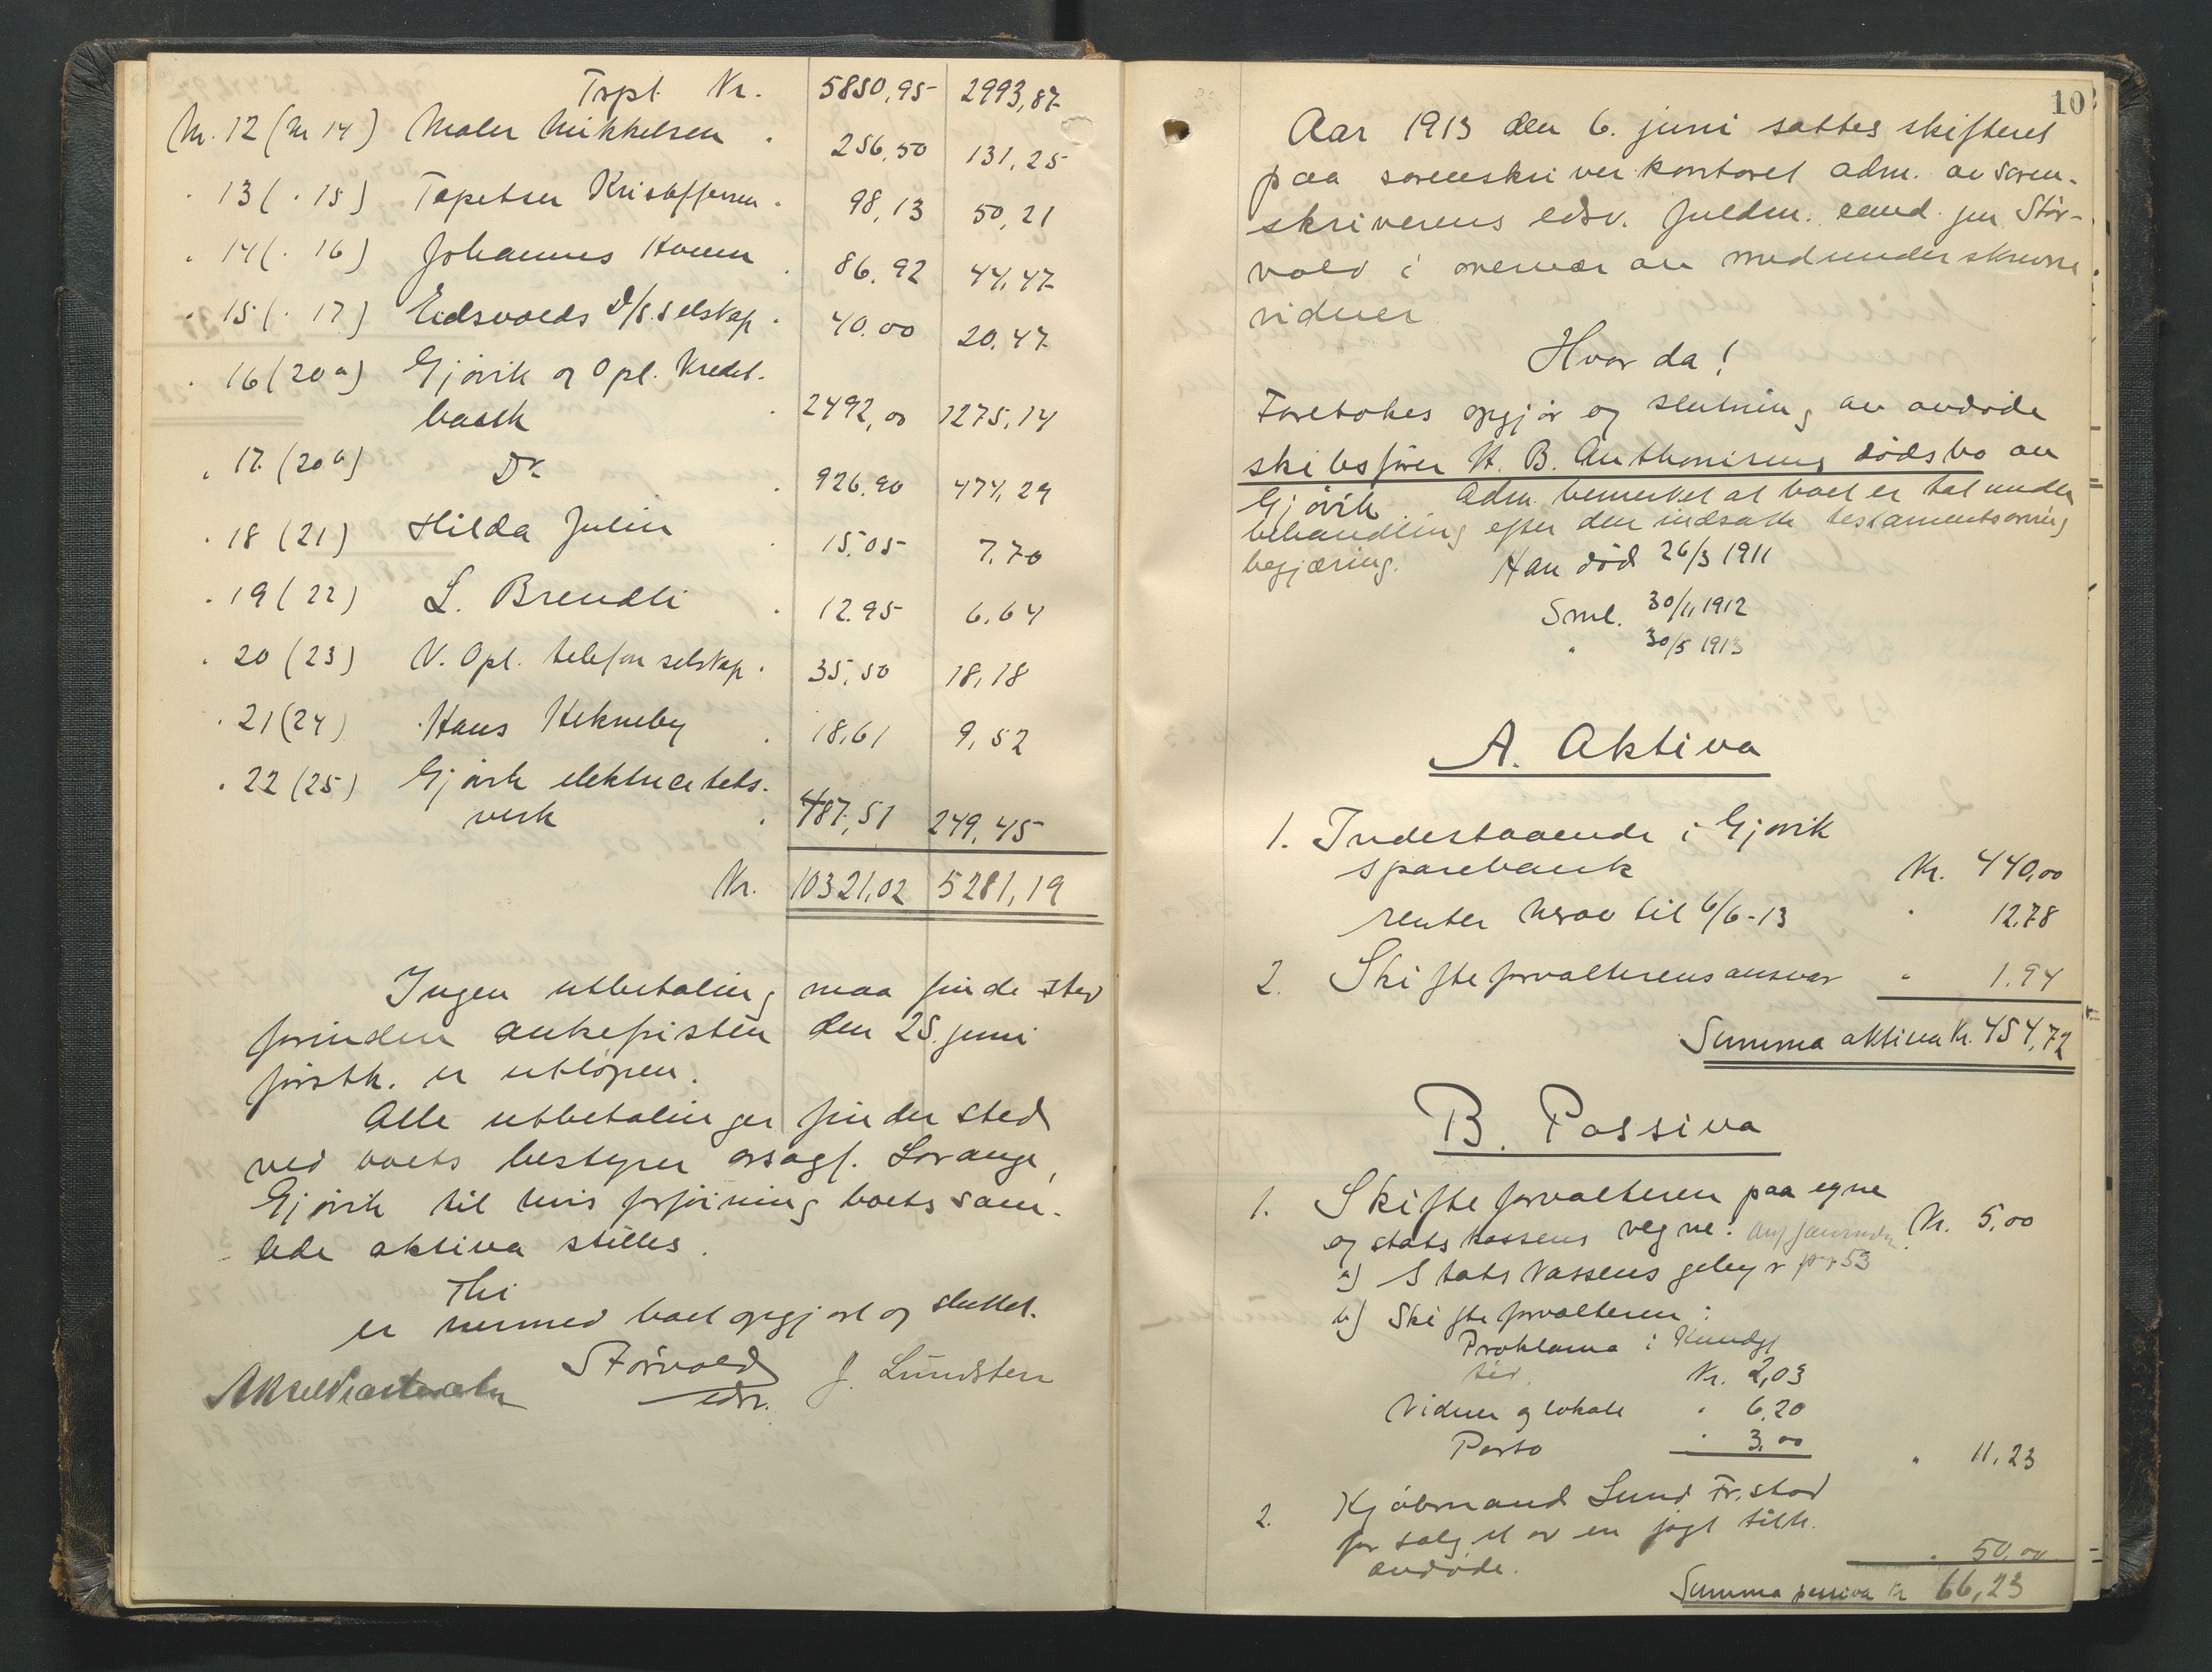 Trpt. Kr. 5850,95 2993,87
Nr. 12 (Nr 14) Maler Mikkelsen . 256,50 131,25
" 13 ( " 15) Tapetser Kristoffersen . 98,13 50,21
" 14 ( " 16) Johannes . 86,92 44,47
" 15 ( " 17) Eidsvolds D/S.selskap . 40,00 20,47
" 16 (20a) Gjøvik og Opl. Kredit-
bank . 2492,00 1275,14
" 17 (20b) Do . 926,90 474,29
" 18 (21) Hilda Julin . 15,05 7,70
" 19 (22) L. Brendli . 12,95 6,64
" 20 (23) V. Opl. telefonselskap . 35,50 18,18
" 21 (24) Hans Hekneby . 18,61 9,52
" 22 (25) Gjøvik elektricitets-
verk . 487,51 249,45
Kr. 10321,02 5281,19
Ingen utbetaling maa finde sted
forinden ankefristen den 25. juni
førstk. er utløpen.
Alle utbetalinger finder sted
ved boets bestyrer orsagf. Lorange,
Gjøvik til hvis forføining boets sam-
lede aktiva stilles.
Thi
er hermed boet opgjort og sluttet.
Størvold J. Lundsten
edsv.
10
Aar 1913 den 6. juni sattes skifteret
paa sorenskriverkontoret adm. av soren-
skriverens edsv. fuldm. cand. jur Stør-
vold i overvær av medunderskrevne
vidner
Hvor da!
Foretokes opgjør og slutning av avdøde
skibsfører H. B. Anthonisens dødsbo av
Gjøvik Adm. bemerket at boet er tat under
behandling efter den indsatte testamentsarving
begjæring. Han død 26/3 1911
Sml. 30/11 1912
" 30/5 1913
A. Aktiva
1. Indestaaende i Gjøvik
sparebank Kr. 440,00
renter herav til 6/6-13 " 12,78
2. Skifteforvalterens ansvar " 1,94
Summa aktiva Kr. 454,72
B. Passiva
1. Skifteforvalteren paa egne
og statskassens vegne: Kr. 5,00
a) Statskassens gebyr
b) Skifteforvalteren:
Proklama i Kundgj
tid. Kr. 2,03
Vidner og lokale " 6,20
Porto " 3,00 " 11,23
2. Kjøbmand Lund Fr.stad
for salg et av en jagt tilh.
avdøde. " 50,00
Summa passiva Kr 66,23